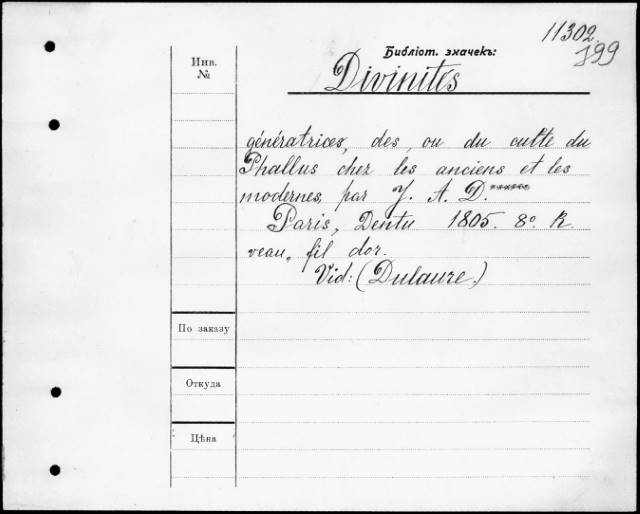 11302.
199
Библіот. значекъ:
Инв.
№
Divinités
génératrices, des, ou du culte du
Phallus chez les anciens et les
modernes, par J. A. D.******
Paris, Dentu 1805. 8º. R.
veau, fil dor.
Vid: (Dulaure.)
По заказу
Откуда
Цѣна